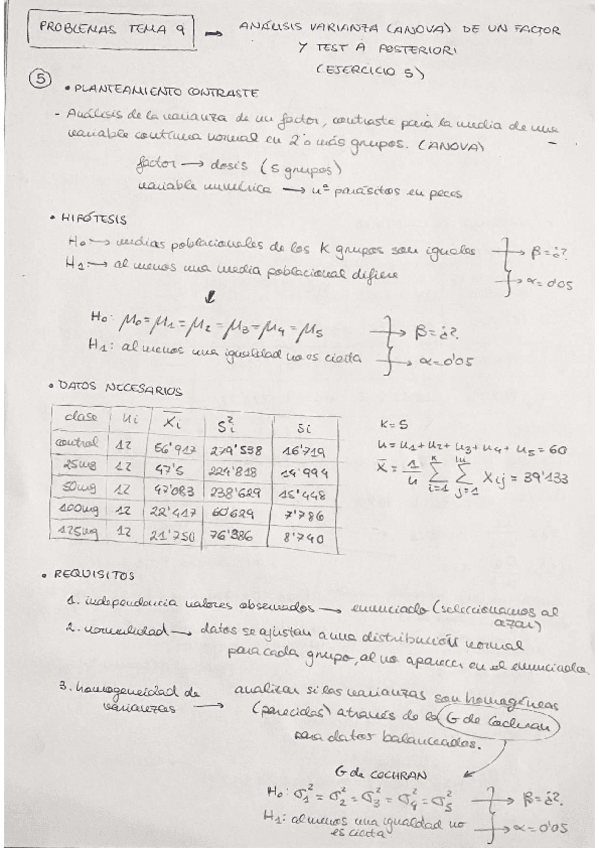 PROBLEMAS TEMA 9 → ANÁLISIS VARIANZA (ANOVA) DE UN FACTOR
Y TEST A POSTERIORI
(EJERCICIO 5)
⑤ • PLANTEAMIENTO CONTRASTE
- Análisis de la varianza de un factor, contraste para la media de una
variable continua normal en 2 o más grupos. (ANOVA)
factor → dosis (5 grupos)
variable numérica → nº parásitos en peces
• HIPÓTESIS
H₀ → medias poblacionales de los K grupos son iguales → β=¿?
H₁ → al menos una media poblacional difiere → α=0'05
↓
H₀: μ₀=μ₁=μ₂=μ₃=μ₄=μ₅ → β=¿?
H₁: al menos una igualdad no es cierta → α=0'05
• DATOS NECESARIOS
clase nᵢ x̄ᵢ Sᵢ² sᵢ
control 12 56'917 279'538 16'719
25mg 12 47'5 224'818 14'994
50mg 12 47'083 238'629 15'448
100mg 12 22'417 60'629 7'786
125mg 12 21'750 76'386 8'740
K=5
n=n₁+n₂+n₃+n₄+n₅=60
x̄ = 1/n Σ(i=1, k) Σ(j=1, nᵢ) Xᵢⱼ = 39'133
• REQUISITOS
1. independencia valores observados → enunciado (seleccionamos al
azar)
2. normalidad → datos se ajustan a una distribución normal
para cada grupo, al no aparecer en el enunciado.
3. homogeneidad de varianzas → analizar si las varianzas son homogéneas
(parecidas) a través de la G de Cochran
para datos balanceados.
G de COCHRAN
H₀: σ₁²=σ₂²=σ₃²=σ₄²=σ₅² → β=¿?
H₁: al menos una igualdad no
es cierta → α=0'05